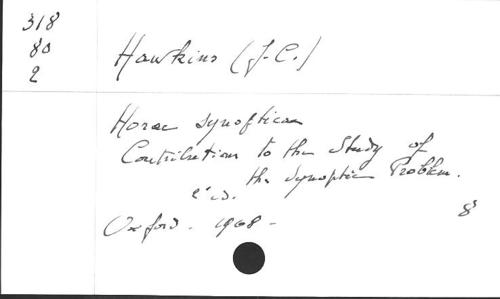 318
80
2
Hawkins (J.C.)
Horae synopticae
Contributions to the Study of
the Synoptic Problem.
2e ed.
8°
Oxford. 1968 -